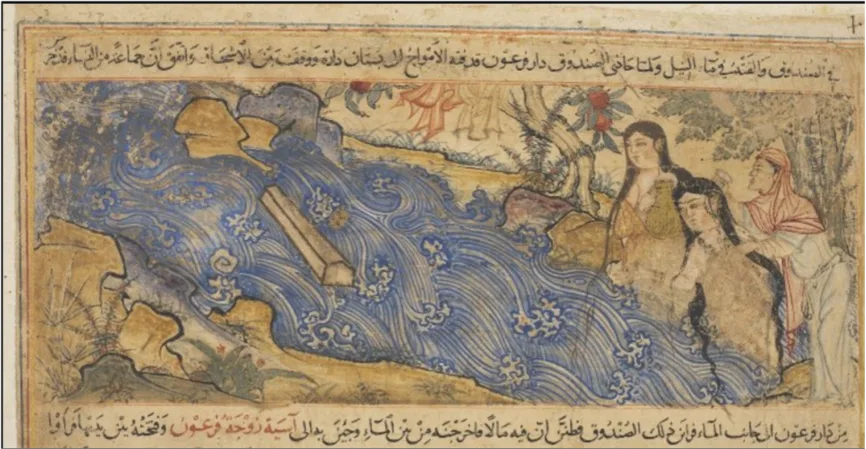 في الصندوق والقته في ماء النيل ولما حاذى الصندوق دار فرعون قدفه الامواج الى بستان داره ووقف بين الاشجار واتفق ان جماعة من النساء قد خر
من دار فرعون الى جانب الماء فراين ذلك الصندوق فظنن ان فيه مالا فاخرجنه من بين الماء وجئن به الى آسية زوجة فرعون وفتحنه بين يديها فراوا